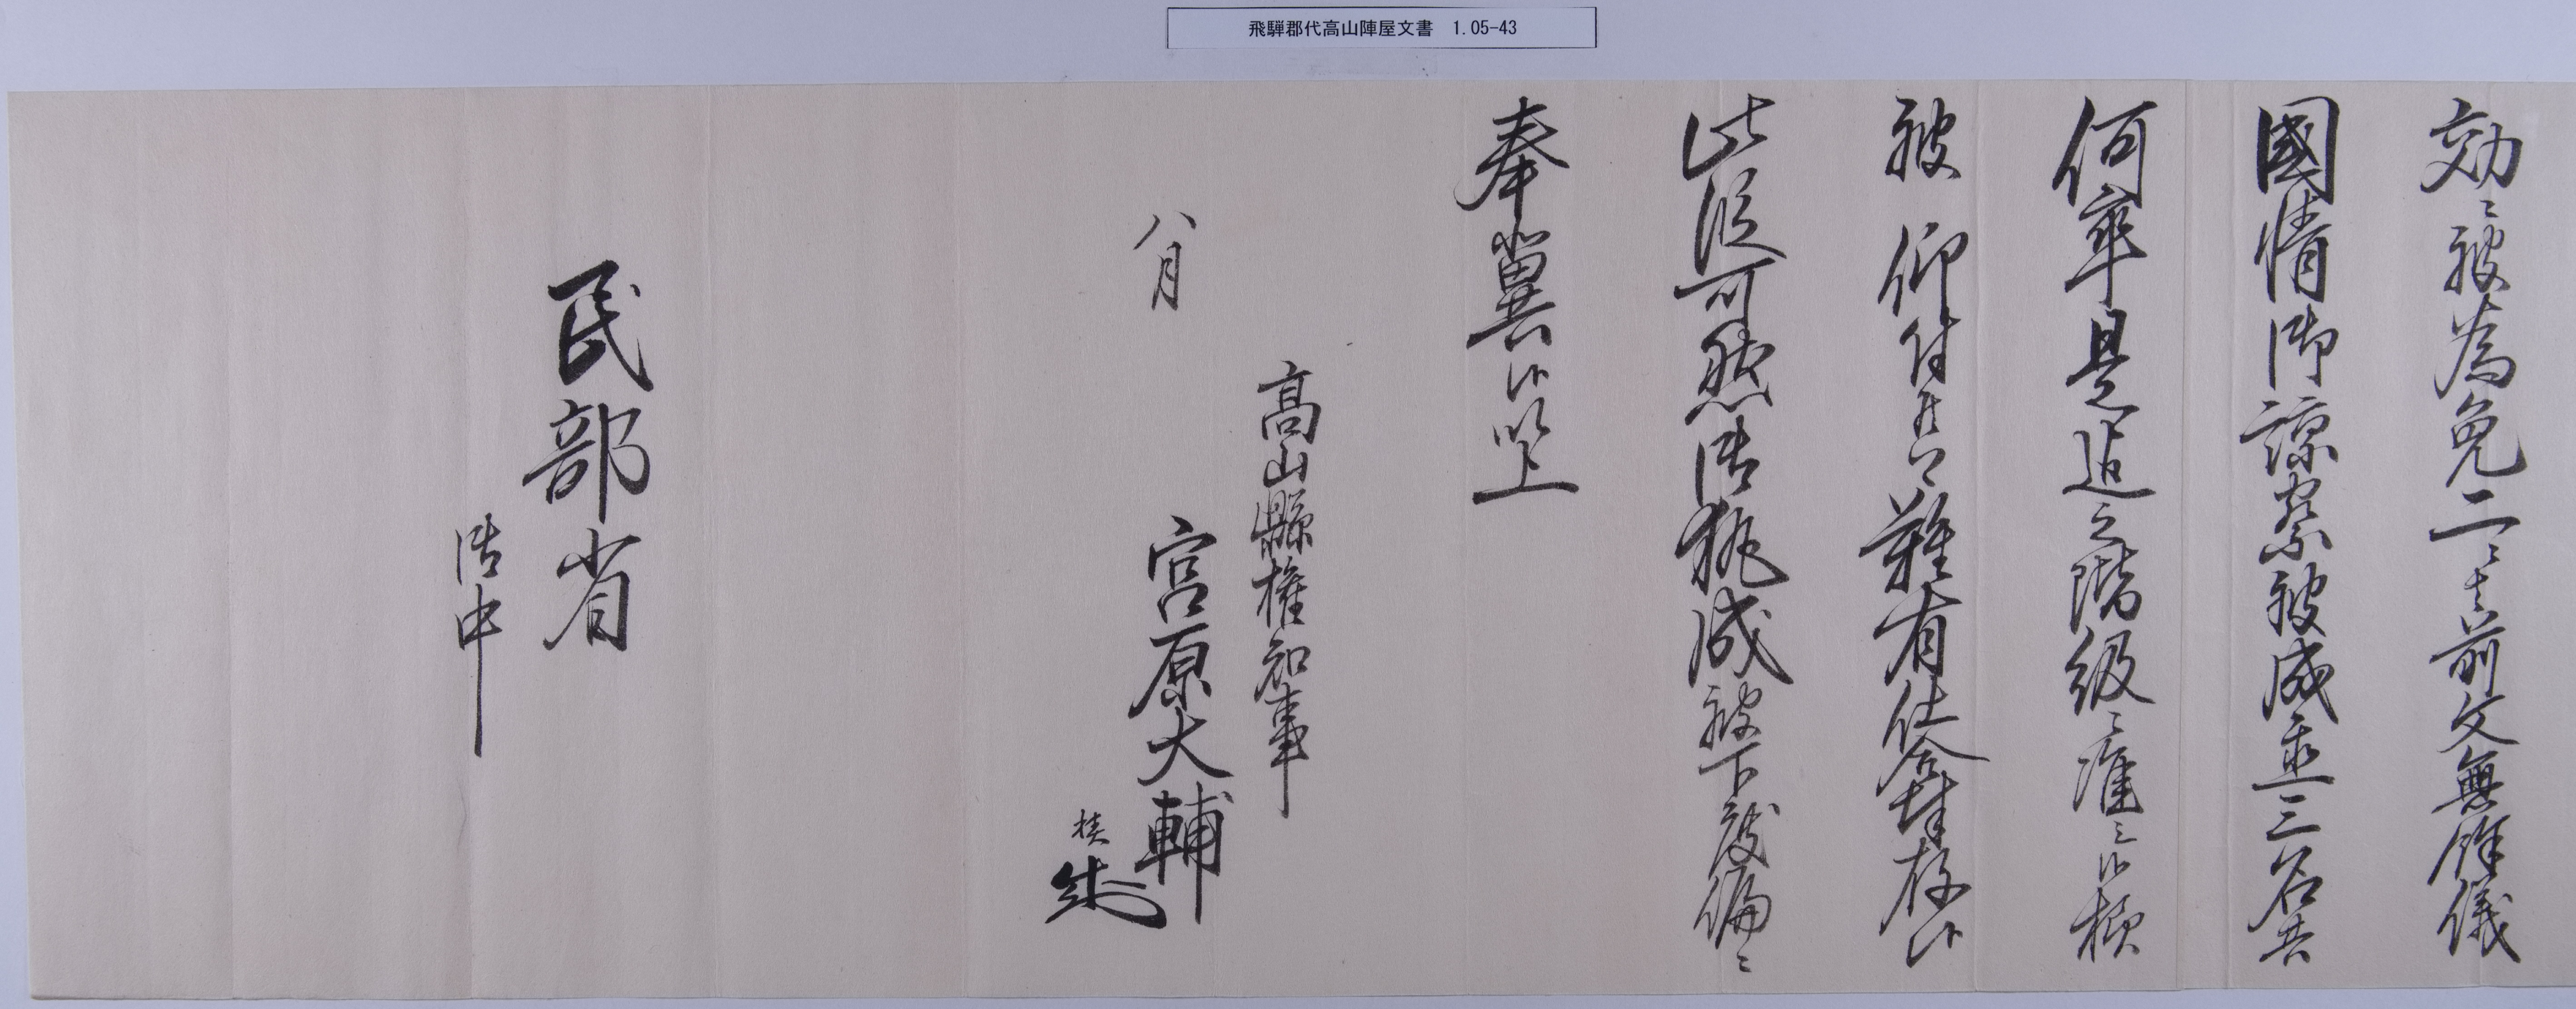 飛騨郡代高山陣屋文書 1.05-43
効ニ被為免二ニ者前文無餘儀
國情御諒察被成並三名共
何卒是迄之階級ニ準シ候様
被 仰付候ハヽ難有仕合奉存候
此段可然御執成被下度偏ニ
奉冀候以上
高山縣権知事
八月 宮原大輔
民部省
御中